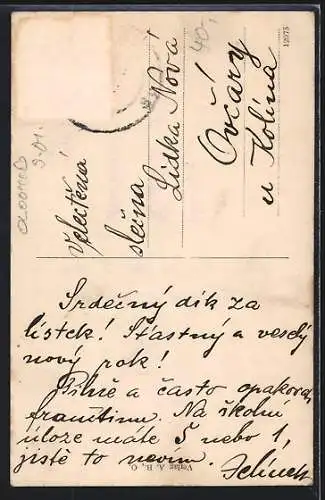 Velectěná
slečna
Lidka Nová
Ovčáry
u Kolína
Srdečný dík za
lístek! Šťastný a veselý
nový rok!
Pilně a často opakovat
franštinu. Na školní
úloze máte 5 nebo 1,
jistě to nevím. Jelínek
Verlag A. B., O.
12975
40,-